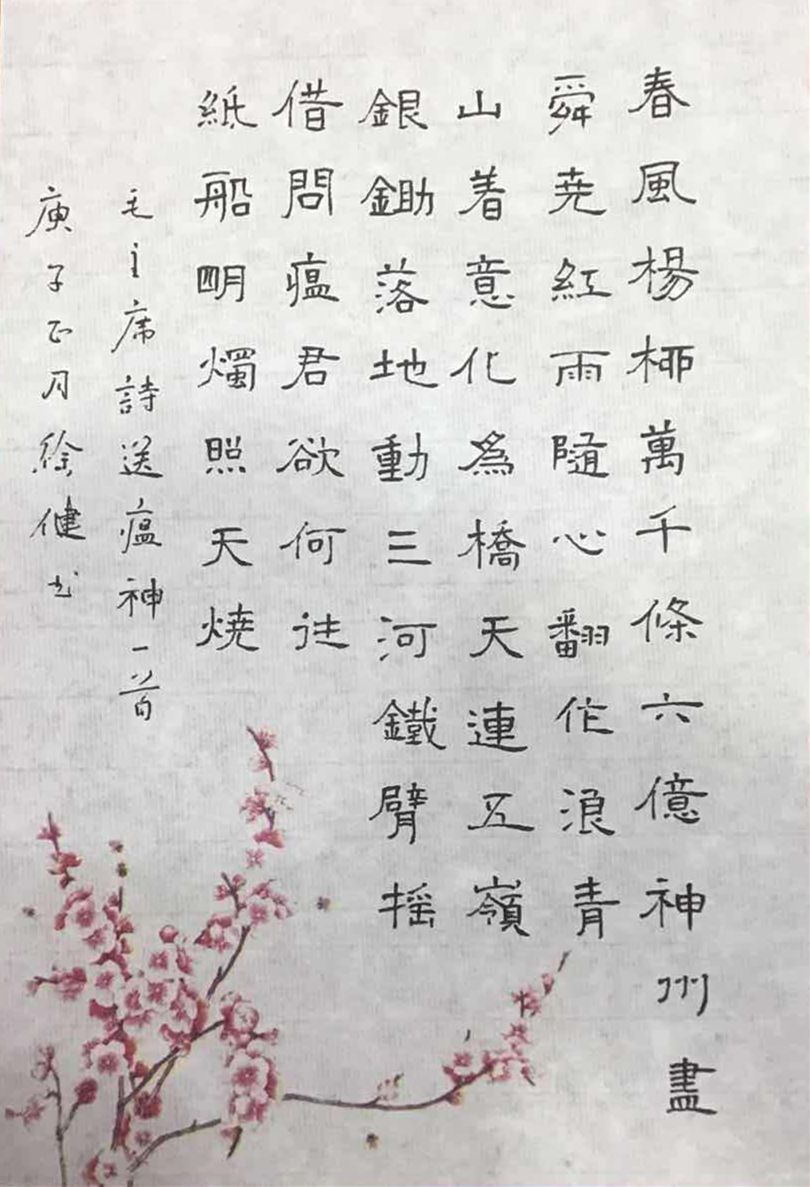 春風楊柳萬千條六億神州盡
舜尭紅雨隨心翻作浪青
山着意化為橋天連五嶺
銀鋤落地動三河鐵臂摇
借問瘟君欲何往
紙船明燭照天燒
毛主席詩送瘟神一首
庚子正月徐健书